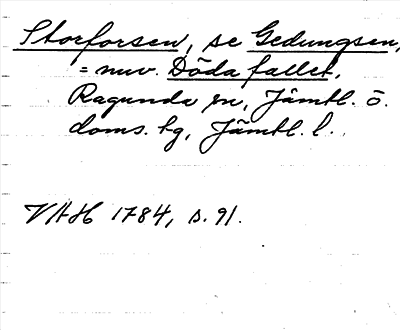 Storforsen, se Gedungsen,
= nuv. Döda fallet,
Ragunda sn, Jämtl. ö.
doms. tg, Jämtl. l.
VAH 1784, s. 91.